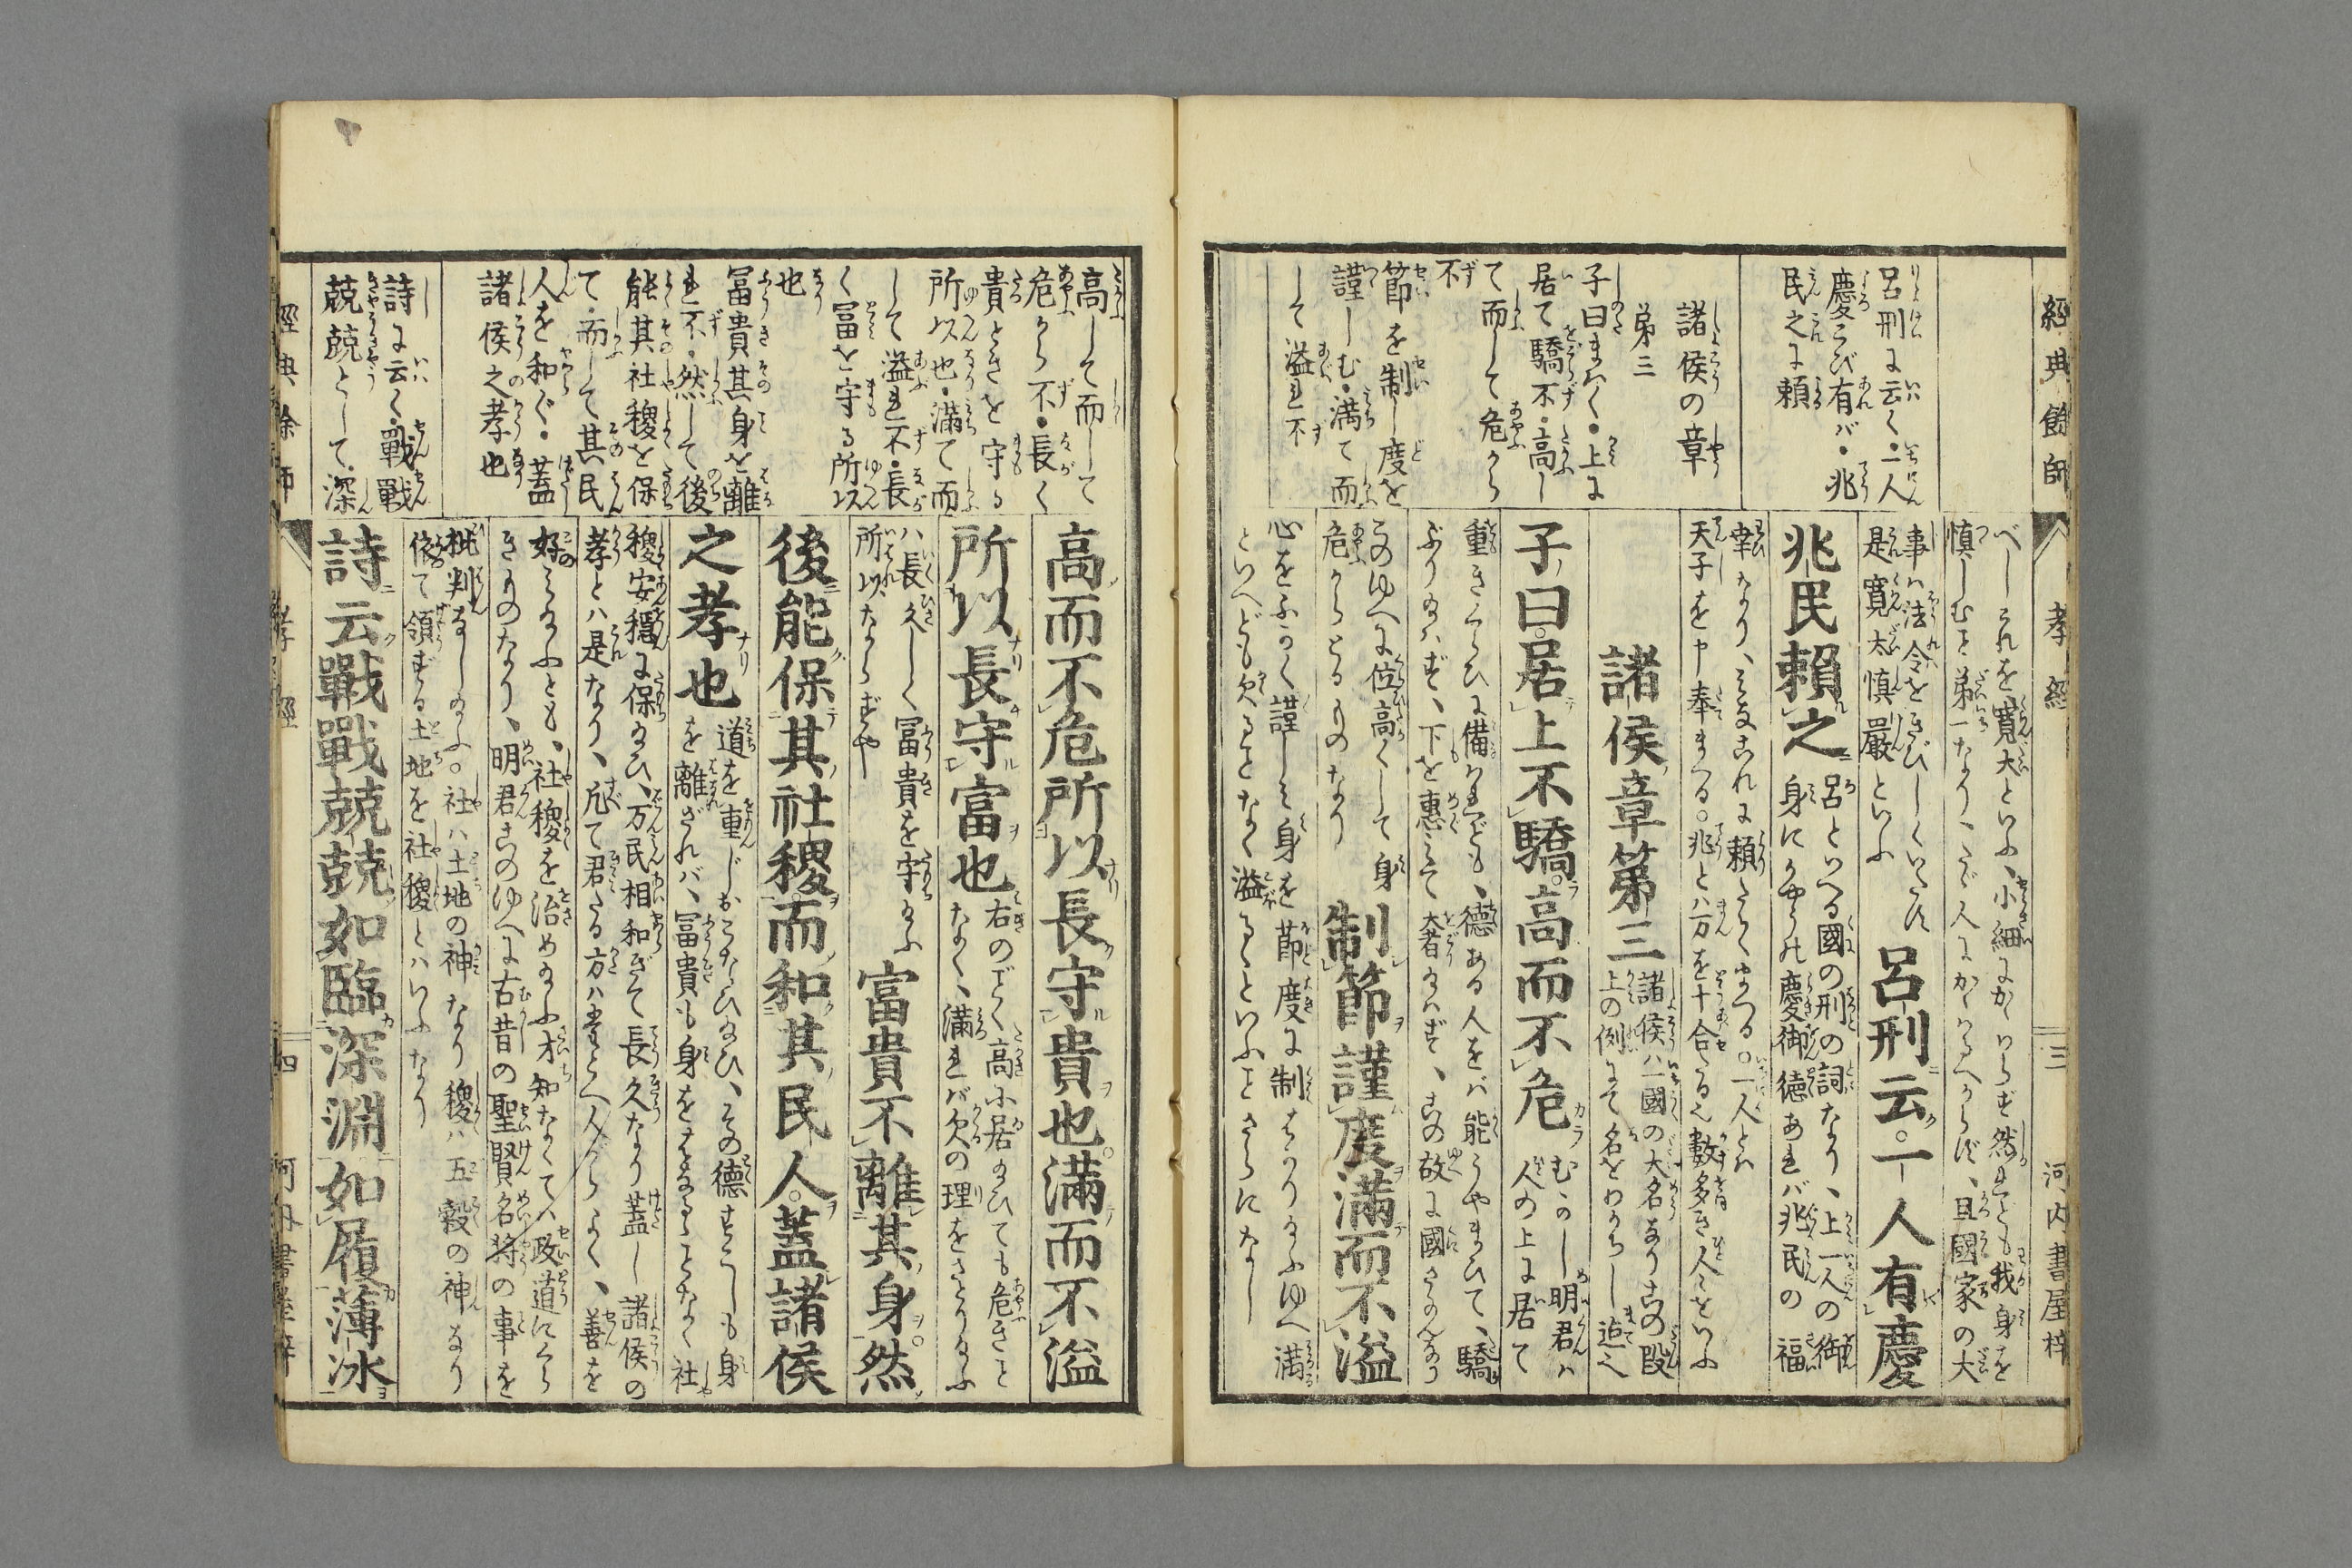 經典餘師
孝經
三
河内書屋梓
呂刑に云く・一人
慶び有バ・兆
民之に頼
諸侯の章
第三
子曰まく・上に
居て驕不・高し
て而して危から
不
節を制し度を
謹しむ・満て而
して溢れ不
べしそれを寛大といふ、小細にかゝはらず然れども我身を
慎しむを第一なり、たゞ人にかくるべからず、且國家の大
事ハ法令をきびしくいたす
是寛大慎嚴といふ
呂刑云一人有慶
兆民頼之
呂といへる國の刑の詞なり、上一人の御
身にかやうの慶御徳あれバ兆民の福
幸なり、みなこれに頼たてまつる。一人とハ
天子を申奉まつる。兆とハ万を十合たる也數多き人をいふ
諸侯章第三
諸侯ハ一國の大名なり此の段
上の例にて名をわかちし迄也
子曰居上不驕高而不危
むかし明君ハ
人の上に居て
重きくらひに備はれども、德ある人をバ能うやまひて、驕
ぶり給はず、下を惠みて奢給はず、此の故に國
このゆへに位高くして身
危からざるものなり
制節謹度満而不溢
心をふかく謹しみ身を節度に制はかり給ふゆへ満
といへども欠ることなく溢るといふことさらになし
高して而して
危から不・長く
貴ときを守る
所以也・満て而
して溢れ不・長
く冨を守る所以
也
冨貴其身を離
れ不・然して後
能其社稷を保
て・而して其民
人を和ぐ・蓋
諸侯之孝也
詩に云く・戰戰
兢兢として・深
高而不危所以長守貴也満而不溢
所以長守富也
右のごとく高に居給ひても危きこと
なく、満れバ欠の理をさとり給ふ
ハ長久しく冨貴を守給ふ
所以ならずや
富貴不離其身然
後能保其社稷而和其民人蓋諸侯
之孝也
道を重じおこなひ給ひ、その德すこしも身
を離ざれバ、冨貴も身をはなるゝことなく社
稷安穏に保給ひ、万民相和ぎて長久なり蓋し諸侯の
孝とハ是なり、凡て君たる方ハたとへ人がらよく、善を
好み給ふとも、社稷を治め給ふ才知なくてハ政道にくら
きものなり、明君このゆへに古昔の聖賢名将の事を
批判なし給ふ。社ハ土地の神なり稷ハ五穀の神なり
依て領ずる土地を社稷とハいふなり
詩云戰戰兢兢如臨深淵如履薄冰
經典餘師
孝經
四
河内書屋梓